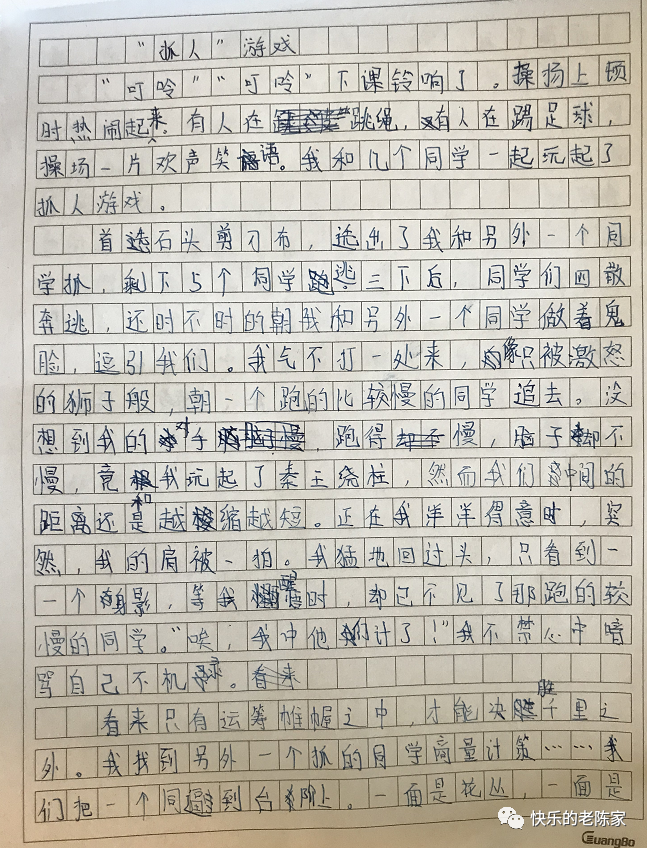 “抓人”游戏
“叮呤”“叮呤”下课铃响了。操扬上顿
时热闹起来。有人在跳绳，有人在踢足球，
操场一片欢声笑语。我和几个同学一起玩起了
抓人游戏。
首选石头剪刀布，选出了我和另外一个同
学抓，剩下5个同学逃三下后，同学们四散
奔逃，还时不时的朝我和另外一个同学做着鬼
脸，逗引我们。我气不打一处来，像只被激怒
的狮子般，朝一个跑的比较慢的同学追去。没
想到我的对手跑得慢，脑子却不
慢，竟和我玩起了秦王绕柱，然而我们中间的
距离还是越缩越短。正在我洋洋得意时，突
然，我的肩被一拍。我猛地回过头，只看到一
一个身影，等我醒悟时，却已不见了那跑的较
慢的同学。“唉，我中他们计了！”我不禁心中暗
骂自己不机灵。
看来只有运筹帷幄之中，才能决胜千里之
外。我找到另外一个抓的同学商量计策……我
们把一个同逼到台阶上。一面是花丛，一面是
快乐的老陈家
GuangBo